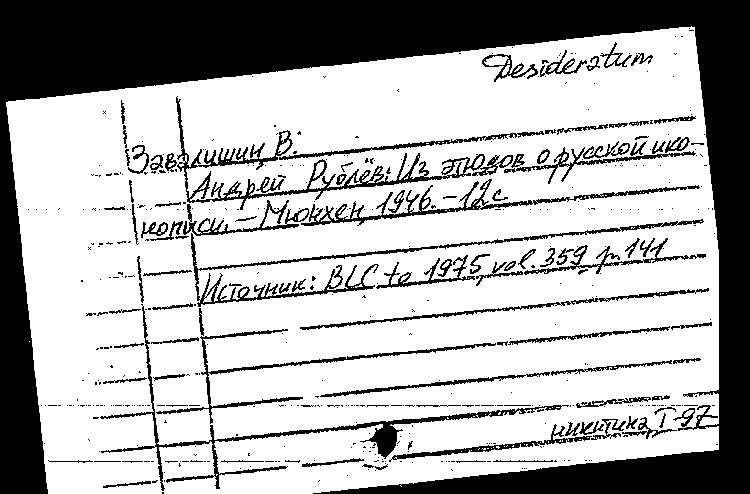 Desideratum
Завалишин, В.
Андрей Рублёв: Из этюдов о русской ико-
нописи. – Мюнхен, 1946. – 12 с
Источник: BLC to 1975, vol. 359, p. 141
никитина, I-97